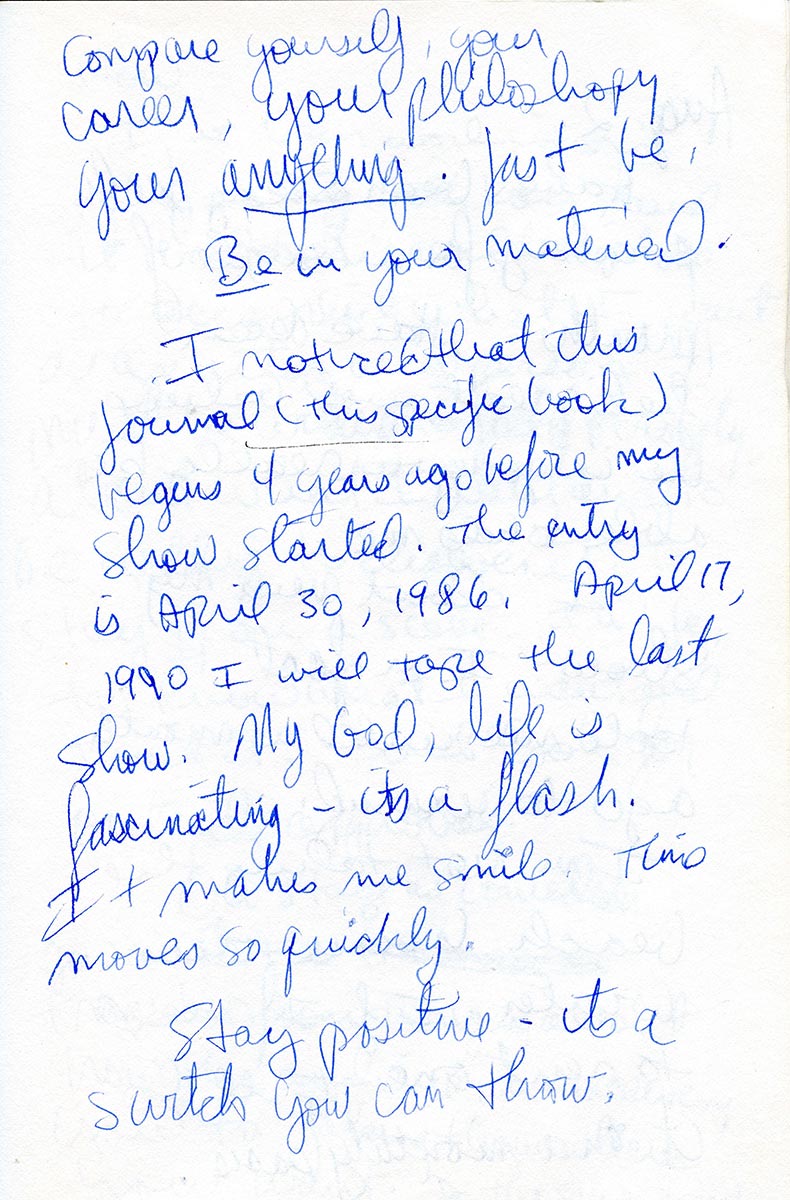 Compare yourself, your
career, your philoshopy
your anything. Just be,
Be in your material.
I noticed that this
journal (this specific book)
begins 4 years ago before my
show started. The entry
is April 30, 1986. April 17,
1990 I will tape the last
show. My God, life is
fascinating - its a flash.
It makes me smile. Time
moves so quickly.
Stay positive - its a
switch you can throw.